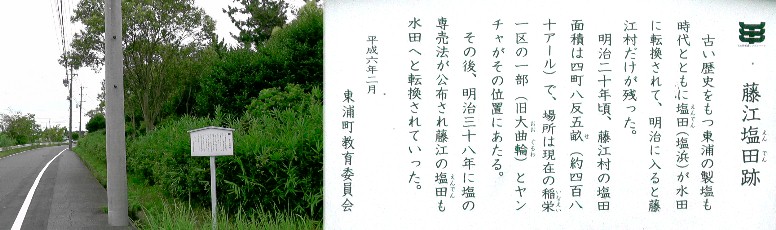 藤江塩田跡
えんでん
古い歴史をもつ東浦の製塩も
時代とともに塩田（塩浜）が水田
えんでん
に転換されて、明治に入ると藤
江村だけが残った。
明治二十年頃、藤江村の塩田
面積は四町八反五畝（約四百八
せ
十アール）で、場所は現在の稲栄
一区の一部（旧大曲輪）とヤン
おおぐるわ
チャがその位置にあたる。
その後、明治三十八年に塩の
専売法が公布され藤江の塩田も
えんでん
水田へと転換されていった。
平成六年二月
東浦町教育委員会